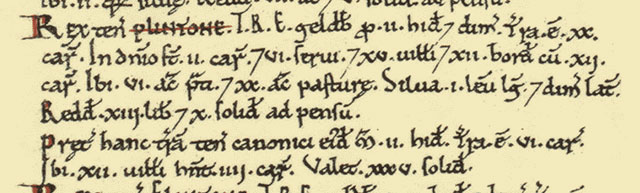 Rex ten̄ PLUNTONE. T.R.E. geldb̄ ꝓ .ii. hid̄ 7 dim̄. Tr̄a.ē.xx.
car̄. In dn̄io st̄ .ii. car̄. 7 vi. serui. 7 xv. uilli 7 xii. bord̄ cū .xii.
car̄. Ibi .vi. ac̄ p̄ti. 7 xx. ac̄ pasturę. Silua .i. leū lḡ. 7 dim̄ lat̄.
Redd̄ .xiii. lib̄ 7 x. solid̄ ad pensū.
Pret̄ hanc tr̄a ten̄ canonici ei'd m̄ .ii. hid̄. Tr̄a.ē.vi. car̄.
Ibi .xii. uilli hn̄t .iiii. car̄. Valet .xxxv. solid̄.